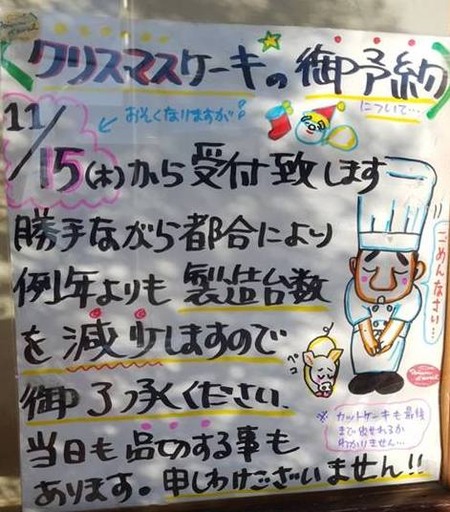 クリスマスケーキの御予約
について…
11/15(木)から受付致します
おそくなりますが
勝手ながら都合により
例年よりも製造台数
を減少しますので
御了承ください。
ごめんなさい…
ペコ
当日も品切する事も
あります。申しわけございません!!
※カットケーキも最後
まで出せれるか
わかりません…